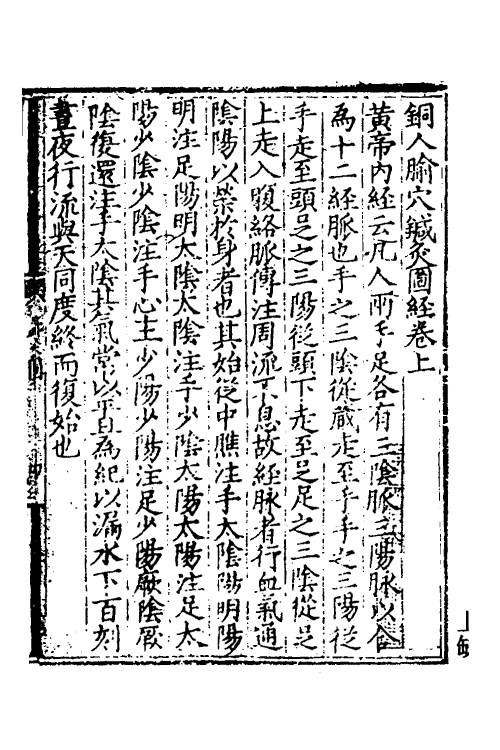 銅人腧穴鍼灸圖經卷上
黃帝內經云凡人兩手足各有三陰脈三陽脈以合
為十二經脈也手之三陰從藏走至手手之三陽從
手走至頭足之三陽從頭下走至足足之三陰從足
上走入腹絡脈傳注周流不息故經脈者行血氣通
陰陽以榮於身者也其始從中焦注手太陰陽明陽
明注足陽明太陰太陰注手少陰太陽太陽注足太
陽少陰少陰注手心主少陽少陽注足少陽厥陰厥
陰復還注手太陰其氣常以平旦為紀以漏水下百刻
晝夜行流與天同度終而復始也